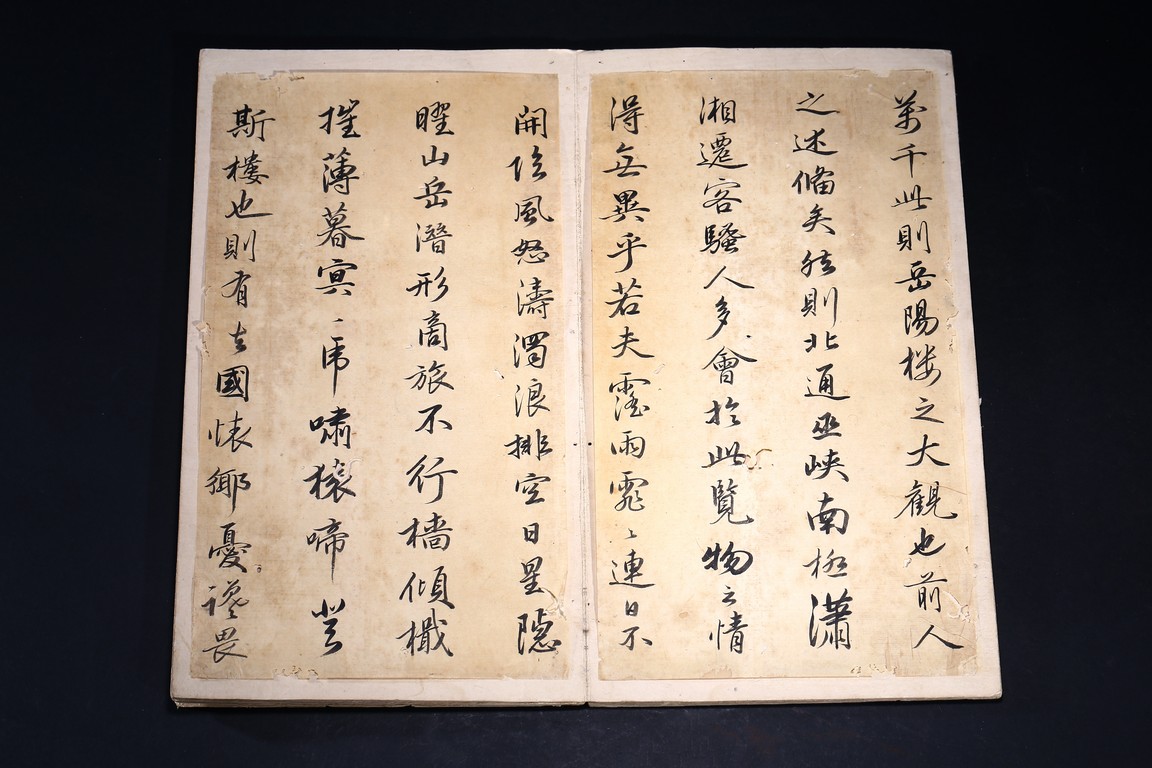 萬千此則岳陽樓之大觀也前人
之述備矣然則北通巫峽南極瀟
湘遷客騷人多會於此覽物之情
淂無異乎若夫霪雨霏〻連日不
開陰風怒濤濁浪排空日星隱
曜山岳潛形商旅不行檣傾檝
摧薄暮冥〻虎嘯猿啼登
斯樓也則有去國懐鄉憂讒畏